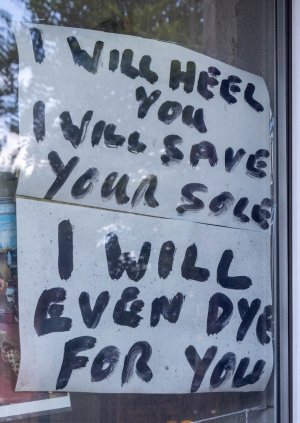 I WILL HEEL
YOU
I WILL SAVE
YOUR SOLE
I WILL
EVEN DYE
FOR YOU